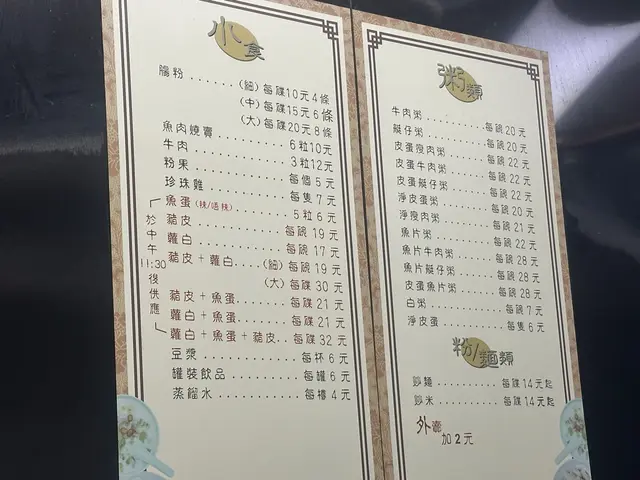 小食
腸粉......(細)每碟10元4條
(中)每碟15元6條
(大)每碟20元8條
魚肉燒賣..........6粒10元
牛肉..........3粒12元
粉果..........每個5元
珍珠雞..........每隻7元
魚蛋(辣/唔辣)..........5粒6元
豬皮..........每碗19元
蘿白..........每碗17元
豬皮+蘿白....(細)每碗19元
(大)每碟30元
豬皮+魚蛋........每碟21元
蘿白+魚蛋........每碟21元
蘿白+魚蛋+豬皮..每碟32元
於中午11:30後供應
豆漿..........每杯6元
罐裝飲品..........每罐6元
蒸餾水..........每樽4元
粥類
牛肉粥..........每碗20元
艇仔粥..........每碗20元
皮蛋瘦肉粥..........每碗22元
皮蛋牛肉粥..........每碗22元
皮蛋艇仔粥..........每碗22元
淨皮蛋粥..........每碗20元
淨瘦肉粥..........每碗21元
魚片粥..........每碗22元
魚片牛肉粥..........每碗28元
魚片艇仔粥..........每碗28元
皮蛋魚片粥..........每碗28元
白粥..........每碗7元
淨皮蛋..........每隻6元
粉/麵類
炒麵..........每碟14元起
炒米..........每碟14元起
外賣
加2元